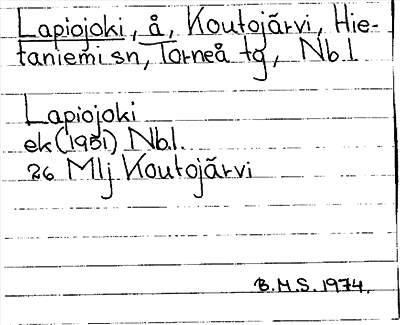 Lapiojoki, å, Koutojärvi, Hie-
taniemi sn, Torneå tg, Nb.l.
Lapiojoki
ek (1951) Nb.l.
26 Mlj Koutojärvi
B.M.S. 1974.